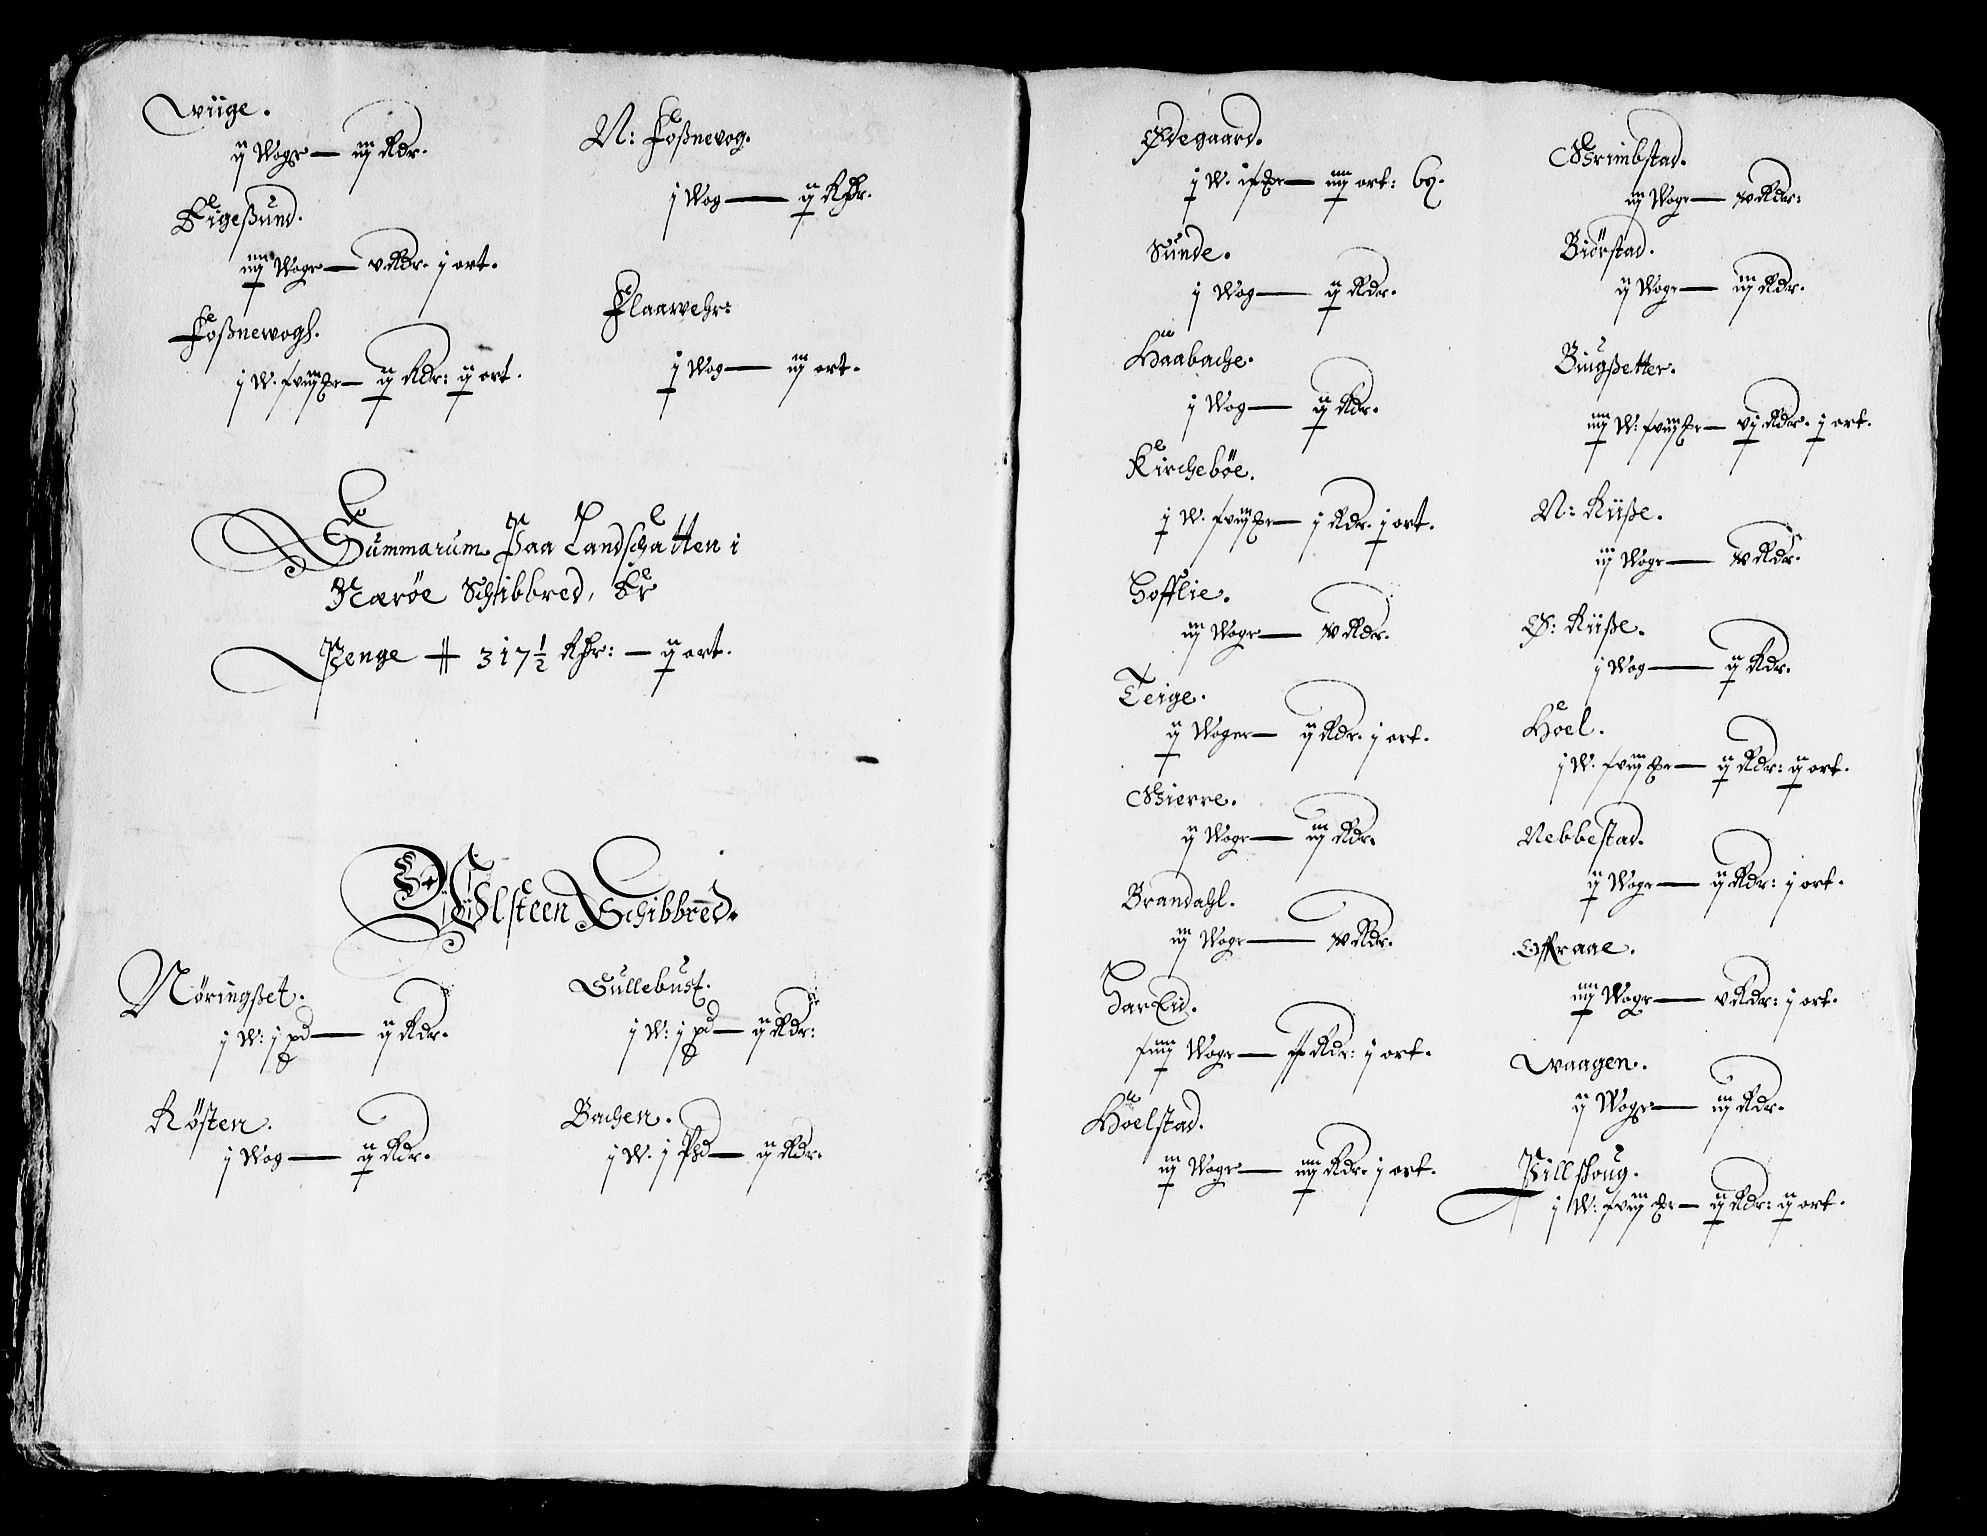 Wiige.
ij Wogr — iij Rdr.
Eigeßund.
iiij Wogr — v Rdr. j ort.
Foßnewogh.
j W. — ij Rdr: ij ort.
N: Foßnevog.
j Wog — ij Rdr.
Flaawehr:
j Wog — iij ort.
Summarum Paa Landschatten i
Nærøe Schibbred, Er
Penge 317½ Rdr: — ij ort.
Ulsteen Schibbred.
Nöringßet.
j W: j pd — ij Rdr.
Rösten.
j Wog — ij Rdr.
Sullebust.
j W: j pd — ij Rdr:
Bachen.
j W. j Pd — ij Rdr.
Ødegaard.
j W. — iiij ort:
Sunde.
j Wog — ij Rdr.
Haabache.
j Wog — ij Rdr.
Kirchebøe.
j W. — j Rdr. j ort.
Hofflie.
iij Wogr — Rdr.
Teige.
ij Woger — ij Rdr. j ort.
Gierre.
ij Wogr — iij Rdr.
Brandahl.
iij Wogr — Rdr.
HarEid.
Wogr — Rdr: j ort.
Hoelstad.
iij Wogr — iiij Rdr. j ort.
Grimbstad.
iij Wogr — Rdr:
Biörstad.
ij Wogr — iij Rdr.
Bingßetter.
iiij W: — vj Rdr. j ort.
N: Riiße.
iij Wogr — Rdr.
Ø: Riiße.
j Wog — ij Rdr.
Hoel.
j W. — ij Rdr: ij ort.
Nebbestad.
ij Wogr — ij Rdr: j ort.
Offraae.
iiij Wogr — v Rdr: j ort.
Waagen.
ij Wogr — iij Rdr.
Pillskoug.
j W: — ij Rdr: ij ort.